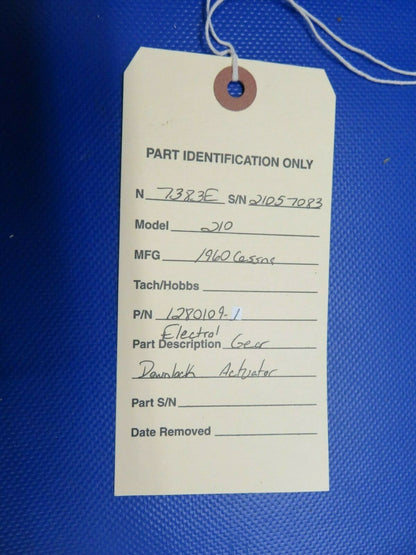 PART IDENTIFICATION ONLY
N 7383E S/N 21057083
Model 210
MFG 1960 Cessna
Tach/Hobbs
P/N 1280109-1
Electrol
Part Description Gear
Downlock Actuator
Part S/N
Date Removed